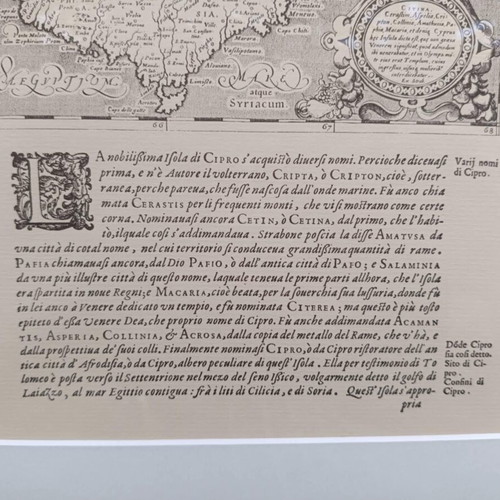 SIA
Capo Chiti
Vasilipotemo
Limisso
Capo delle gatte
ÆGYPTIUM
MARE
atque
Syriacum.
66
67
68
LA nobilißima Isola di CIPRO s'acquistò diuersi nomi. Percioche diceuasi
prima, e n'è Autore il volterrano, CRIPTA, ò CRIPTON, cioè, sotter-
ranea, perche pareua, che fusse nascosa dall'onde marine. Fù anco chia
mata CERASTIS per li frequenti monti, che visi mostrano come certe
corna. Nominauasi ancora CETIN, ò CETINA, dal primo, che l'habi-
tò, ilquale cosi s'addimandaua. Strabone poscia la disse AMATUSA da
vna città di cotal nome, nel cui territorio si conduceua grandißima quantità di rame.
PAFIA chiamauasi ancora, dal Dio PAFIO, ò dall'antica città di PAFO; e SALAMINIA
da vna più illustre città di questo nome, laquale teneua le prime parti allhora, che l'Isola
era spartita in noue Regni; e MACARIA, cioè beata, per la souerchia sua lussuria, donde fù
in lei anco à Venere dedicato un tempio, e fù nominata CITEREA; ma questo è più tosto
epiteto d'essa Venere Dea, che proprio nome di Cipro. Fù anche addimandata ACAMAN
TIS, ASPERIA, COLLINIA, & ACROSA, dalla copia del metallo del Rame, che v'hà, e
dalla prospettiua de' suoi colli. Finalmente nominasi CIPRO, ò da Cipro ristoratore dell'an
tica città d'Afrodisia, ò da Cipro, albero peculiare di quest'Isola. Ella per testimonio di To
lomeo è posta verso il Settentrione nel mezo del seno Issico, volgarmente detto il golfo di
Laiazzo, al mar Egittio contigua: frà i liti di Cilicia, e di Soria. Quest'Isola s'appro-
pria
Varij nomi
di Cipro.
Dõde Cipro
sia cosi detto.
Sito di Ci-
pro.
Confini di
Cipro.